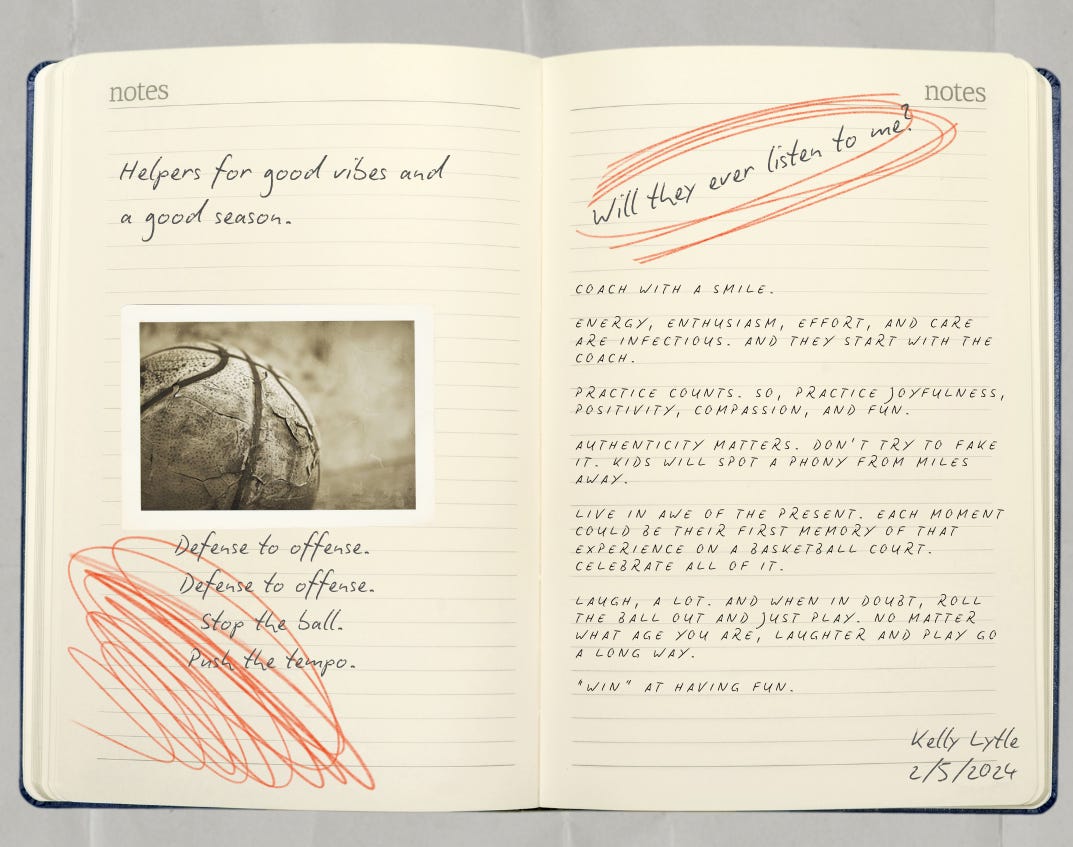 notes
Helpers for good vibes and
a good season.
Defense to offense.
Defense to offense.
Stop the ball.
Push the tempo.
notes
Will they ever listen to me?
COACH WITH A SMILE.
ENERGY, ENTHUSIASM, EFFORT, AND CARE
ARE INFECTIOUS. AND THEY START WITH THE
COACH.
PRACTICE COUNTS. SO, PRACTICE JOYFULNESS,
POSITIVITY, COMPASSION, AND FUN.
AUTHENTICITY MATTERS. DON'T TRY TO FAKE
IT. KIDS WILL SPOT A PHONY FROM MILES
AWAY.
LIVE IN AWE OF THE PRESENT. EACH MOMENT
COULD BE THEIR FIRST MEMORY OF THAT
EXPERIENCE ON A BASKETBALL COURT.
CELEBRATE ALL OF IT.
LAUGH, A LOT. AND WHEN IN DOUBT, ROLL
THE BALL OUT AND JUST PLAY. NO MATTER
WHAT AGE YOU ARE, LAUGHTER AND PLAY GO
A LONG WAY.
"WIN" AT HAVING FUN.
Kelly Lytle
2/5/2024